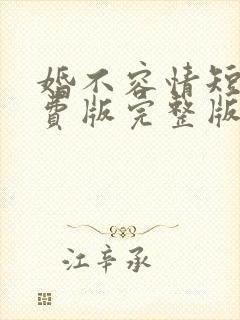 婚不容情短
费版完整版
江辛承